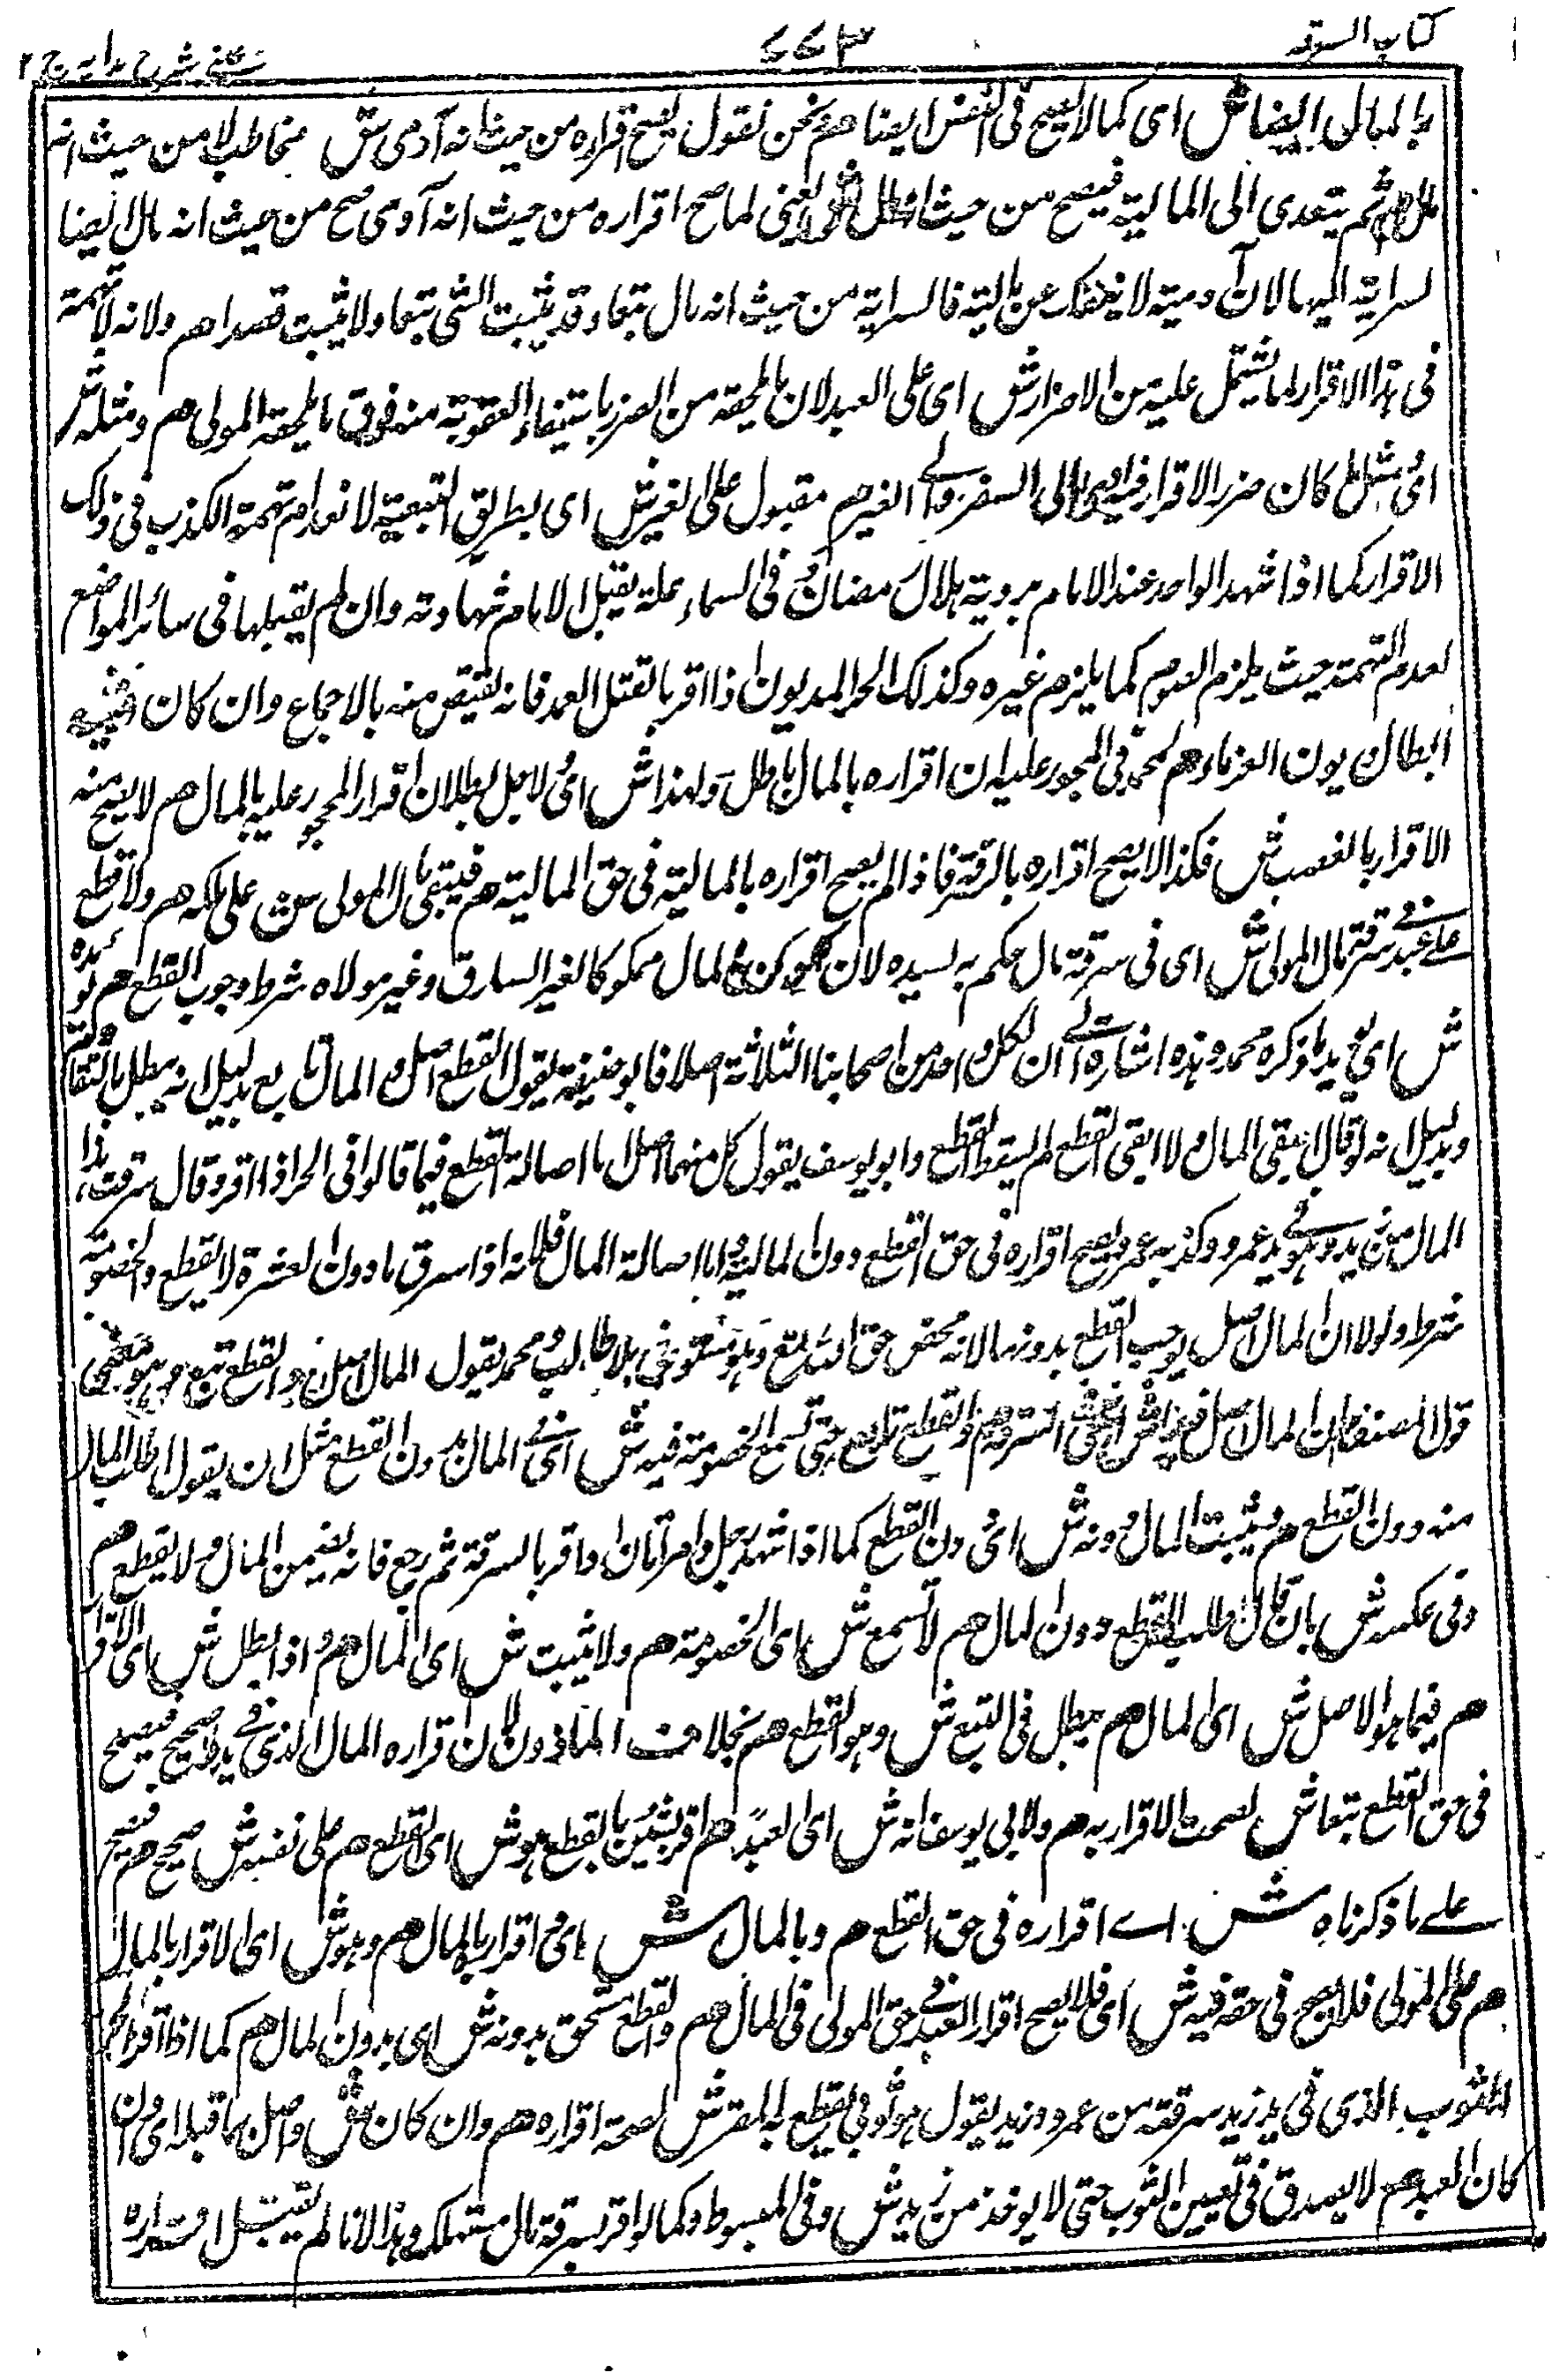 كتاب السرقة
٧٧٣
عينى شرح هدايه ج ٢
بالمال ايضا ش اى كما لا يصح فى النفس ايضا هم ونحن نقول يصح اقراره من حيث انه آدمى ش مخاطب لا من حيث انه
مال هم ثم يتعدى الى المالية فيصح من حيث انه مال ش يعنى لما صح اقراره من حيث انه آدمى صح من حيث انه مال ايضا
لسرايته اليها لان آدميته لا ينفك عن ماليته فالسراية من حيث انه مال تبعا وقد يثبت الشى تبعا ولا يثبت قصدا هم ولانه لا تهمة
فى هذا الاقرار لما يشتمل عليه من الاضرار ش اى على العبد لان ما يلحقه من الضرر باستيفاء العقوبة منه فوق ما يلحقه المولى هم ومثله ش
اى مثل ما كان ضرر الاقرار فيه راجعا الى المقر والى الغير هم مقبول على الغير ش اى بطريق التبعية لانعدام تهمة الكذب فى ذلك
الاقرار كما اذا شهد الواحد عند الامام بروية هلال رمضان و فى السماء علة يقبل الامام شهادته وان لم يقبلها فى سائر المواضع
لعدم التهمة حيث يلزم الصوم كما يلزم غيره وكذلك الحر المديون اذا اقر بالقتل العمد فانه يقتص منه بالاجماع وان كان فيه
ابطال ديون الغرماء هم لمحمد فى المحجور عليه ان اقراره بالمال باطل ولهذا ش اى ولاجل بطلان اقرار المحجور عليه بالمال هم لا يصح منه
الاقرار بالغصب ش فكذا لا يصح اقراره بالسرقة فاذا لم يصح اقراره بالمالية فى حق المالية هم فيبقى مال المولى ش على ملكه هم ولا قطع
على عبد فى سرقة مال المولى ش اى فى سرقة مال حكم به لسيده لان كون المال مملوكا لغير السارق وغير مولاه شرط وجوب القطع هم يؤيده
ش اى يؤيد ما ذكره محمد وهذه اشارة الى ان لكل واحد من اصحابنا الثلاثة اصلا فابو حنيفة يقول القطع اصل والمال تابع بدليل انه يبطل بالتقادم
وبدليل انه لو قال ابقى المال ولا ابقى القطع لم يسقط القطع وابو يوسف يقول كل منهما اصل اما اصالة القطع فيما قالوا فى الحر اذا اقر وقال سرقت هذا
المال من زيد وهو فى يد عمرو وكذبه عمرو يصح اقراره فى حق القطع دون المالية واما اصالة المال فلانه اذا سرق ما دون العشرة لا يقطع والخصومة
شرط ولولا ان المال اصل يوجب القطع بدونها لانه محض حق الله تعالى وهو يستوفى بلا طالب ومحمد يقول المال اصل والقطع تبع وهو معنى
قول المصنف ان المال اصل فيها ش اى فى السرقة هم والقطع تابع حتى تسمع الخصومة فيه ش اى فى المال بدون القطع مثل ان يقول اطلب المال
منه دون القطع هم ويثبت المال دونه ش اى دون القطع كما اذا شهد رجل وامرأتان او اقر بالسرقة ثم رجع فانه يضمن المال ولا يقطع هم
وفى عكسه ش بان قال اطلب القطع دون المال هم لا تسمع ش اى الخصومة هم ولا يثبت ش اى المال هم واذا بطل ش اى الاقرار
هم فيما هو الاصل ش اى المال هم يبطل فى التبع ش وهو القطع هم بخلاف الماذون لان اقراره المال الذى فى يده صحيح فيصح
فى حق القطع تبعا ش لصحة الاقرار به هم ولابى يوسف انه ش اى العبد هم اقر بشيئين بالقطع وهو ش اى القطع هم على نفسه ش صحيح هم فيصح
على ما ذكرناه ش اى اقراره فى حق القطع هم وبالمال ش اى واقراره بالمال هم وهو ش اى الاقرار بالمال
هم على المولى فلا يصح فى حقه فيه ش اى فلا يصح اقرار العبد فى حق المولى فى المال هم والقطع مستحق بدونه ش اى بدون المال هم كما اذا اقر الحر
الثوب الذى فى يد زيد سرقته من عمرو وزيد يقول هو ثوبى يقطع به المقر ش لصحة اقراره هم وان كان ش واصل بما قبله اى وان
كان العبد هم لا يصدق فى تعيين الثوب حتى لا يوخذ من زيد ش وفى المبسوط وكما لو اقر بسرقة مال مستهلك وهذا لانا لم نقبل اقراره